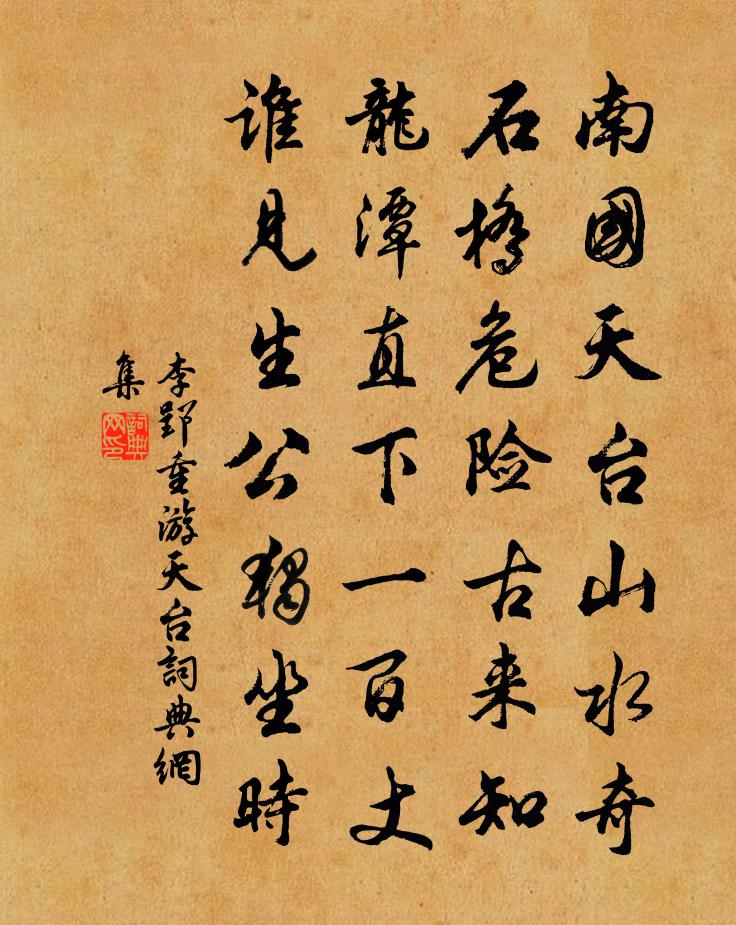 南國天台山水奇
石橋危险古来知
龍潭直下一百丈
誰見生公獨坐時
李郢重游天台詞典網
集
詞典
网印